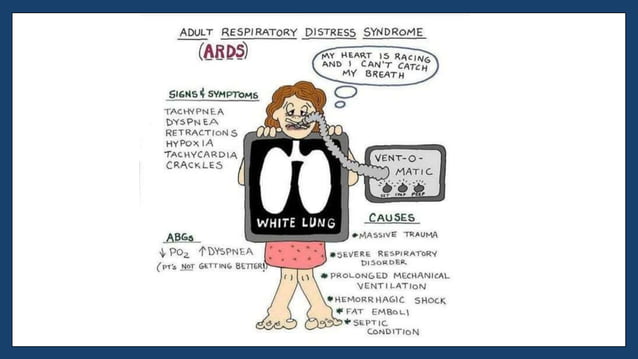 ADULT RESPIRATORY DISTRESS SYNDROME
(ARDS)
MY HEART IS RACING
AND I CAN'T CATCH
MY BREATH
SIGNS & SYMPTOMS
TACHYPNEA
DYSPNEA
RETRACTIONS
HYPOXIA
TACHYCARDIA
CRACKLES
VENT-O-
MATIC
PEEP
WHITE LUNG
CAUSES
*MASSIVE TRAUMA
*SEVERE RESPIRATORY
DISORDER
*PROLONGED MECHANICAL
VENTILATION
*HEMORRHAGIC SHOCK
*FAT EMBOLI
*SEPTIC
CONDITION
ABGs
↓PO2 ↑DYSPNEA
(PT'S NOT GETTING BETTER!)